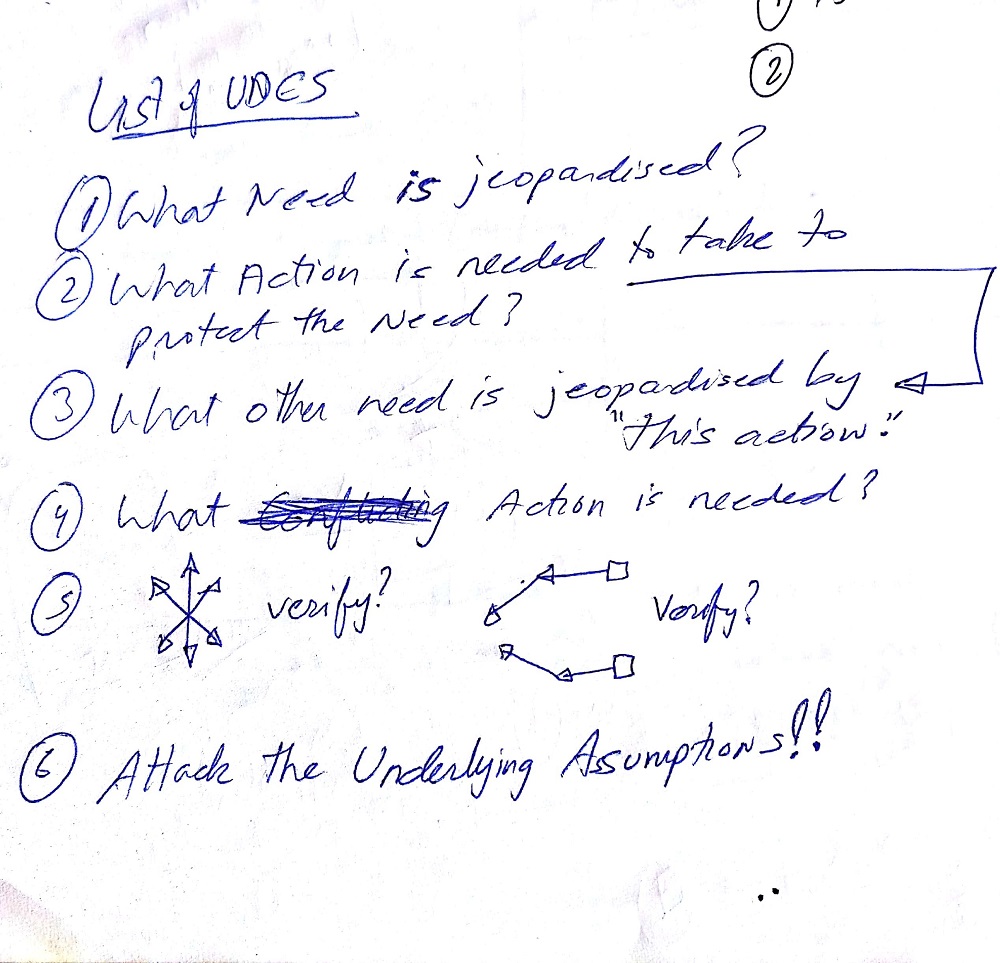 ②
List of UDES
① What Need is jeopardised?
② What Action is needed to take to
protect the Need?
③ What other need is jeopardised by
"this action."
④ What Action is needed?
⑤ verify? Verify?
⑥ Attack the Underlying Assumptions!!